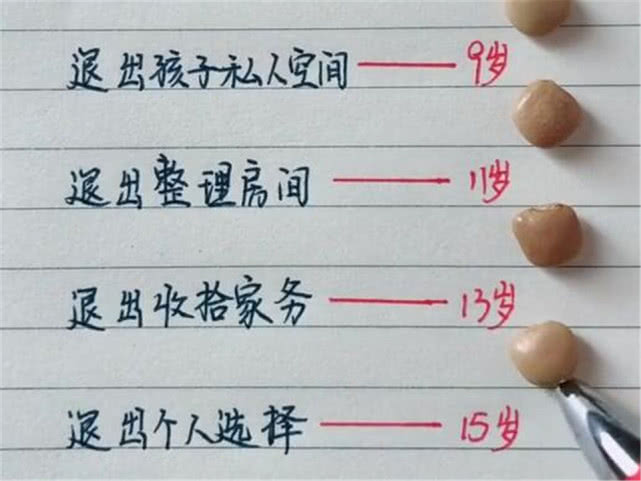 退出孩子私人空间——9岁
退出整理房间——11岁
退出收拾家务——13岁
退出个人选择——15岁